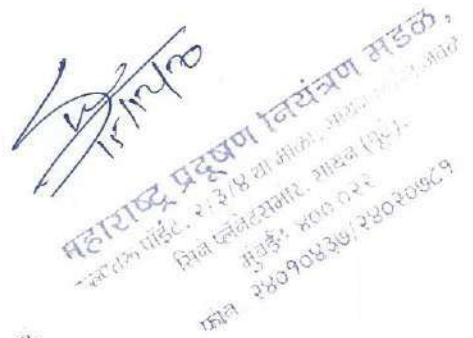 १५/१२/२०
महाराष्ट्र प्रदूषण नियंत्रण मंडळ,
पॉईंट, २/३/४ था माळा, सायन
सिने प्लॅनेटसमोर, सायन (पूर्व),
मुंबई- ४०० ०२२
फोन २४०१०४३७/२४०२०७८१